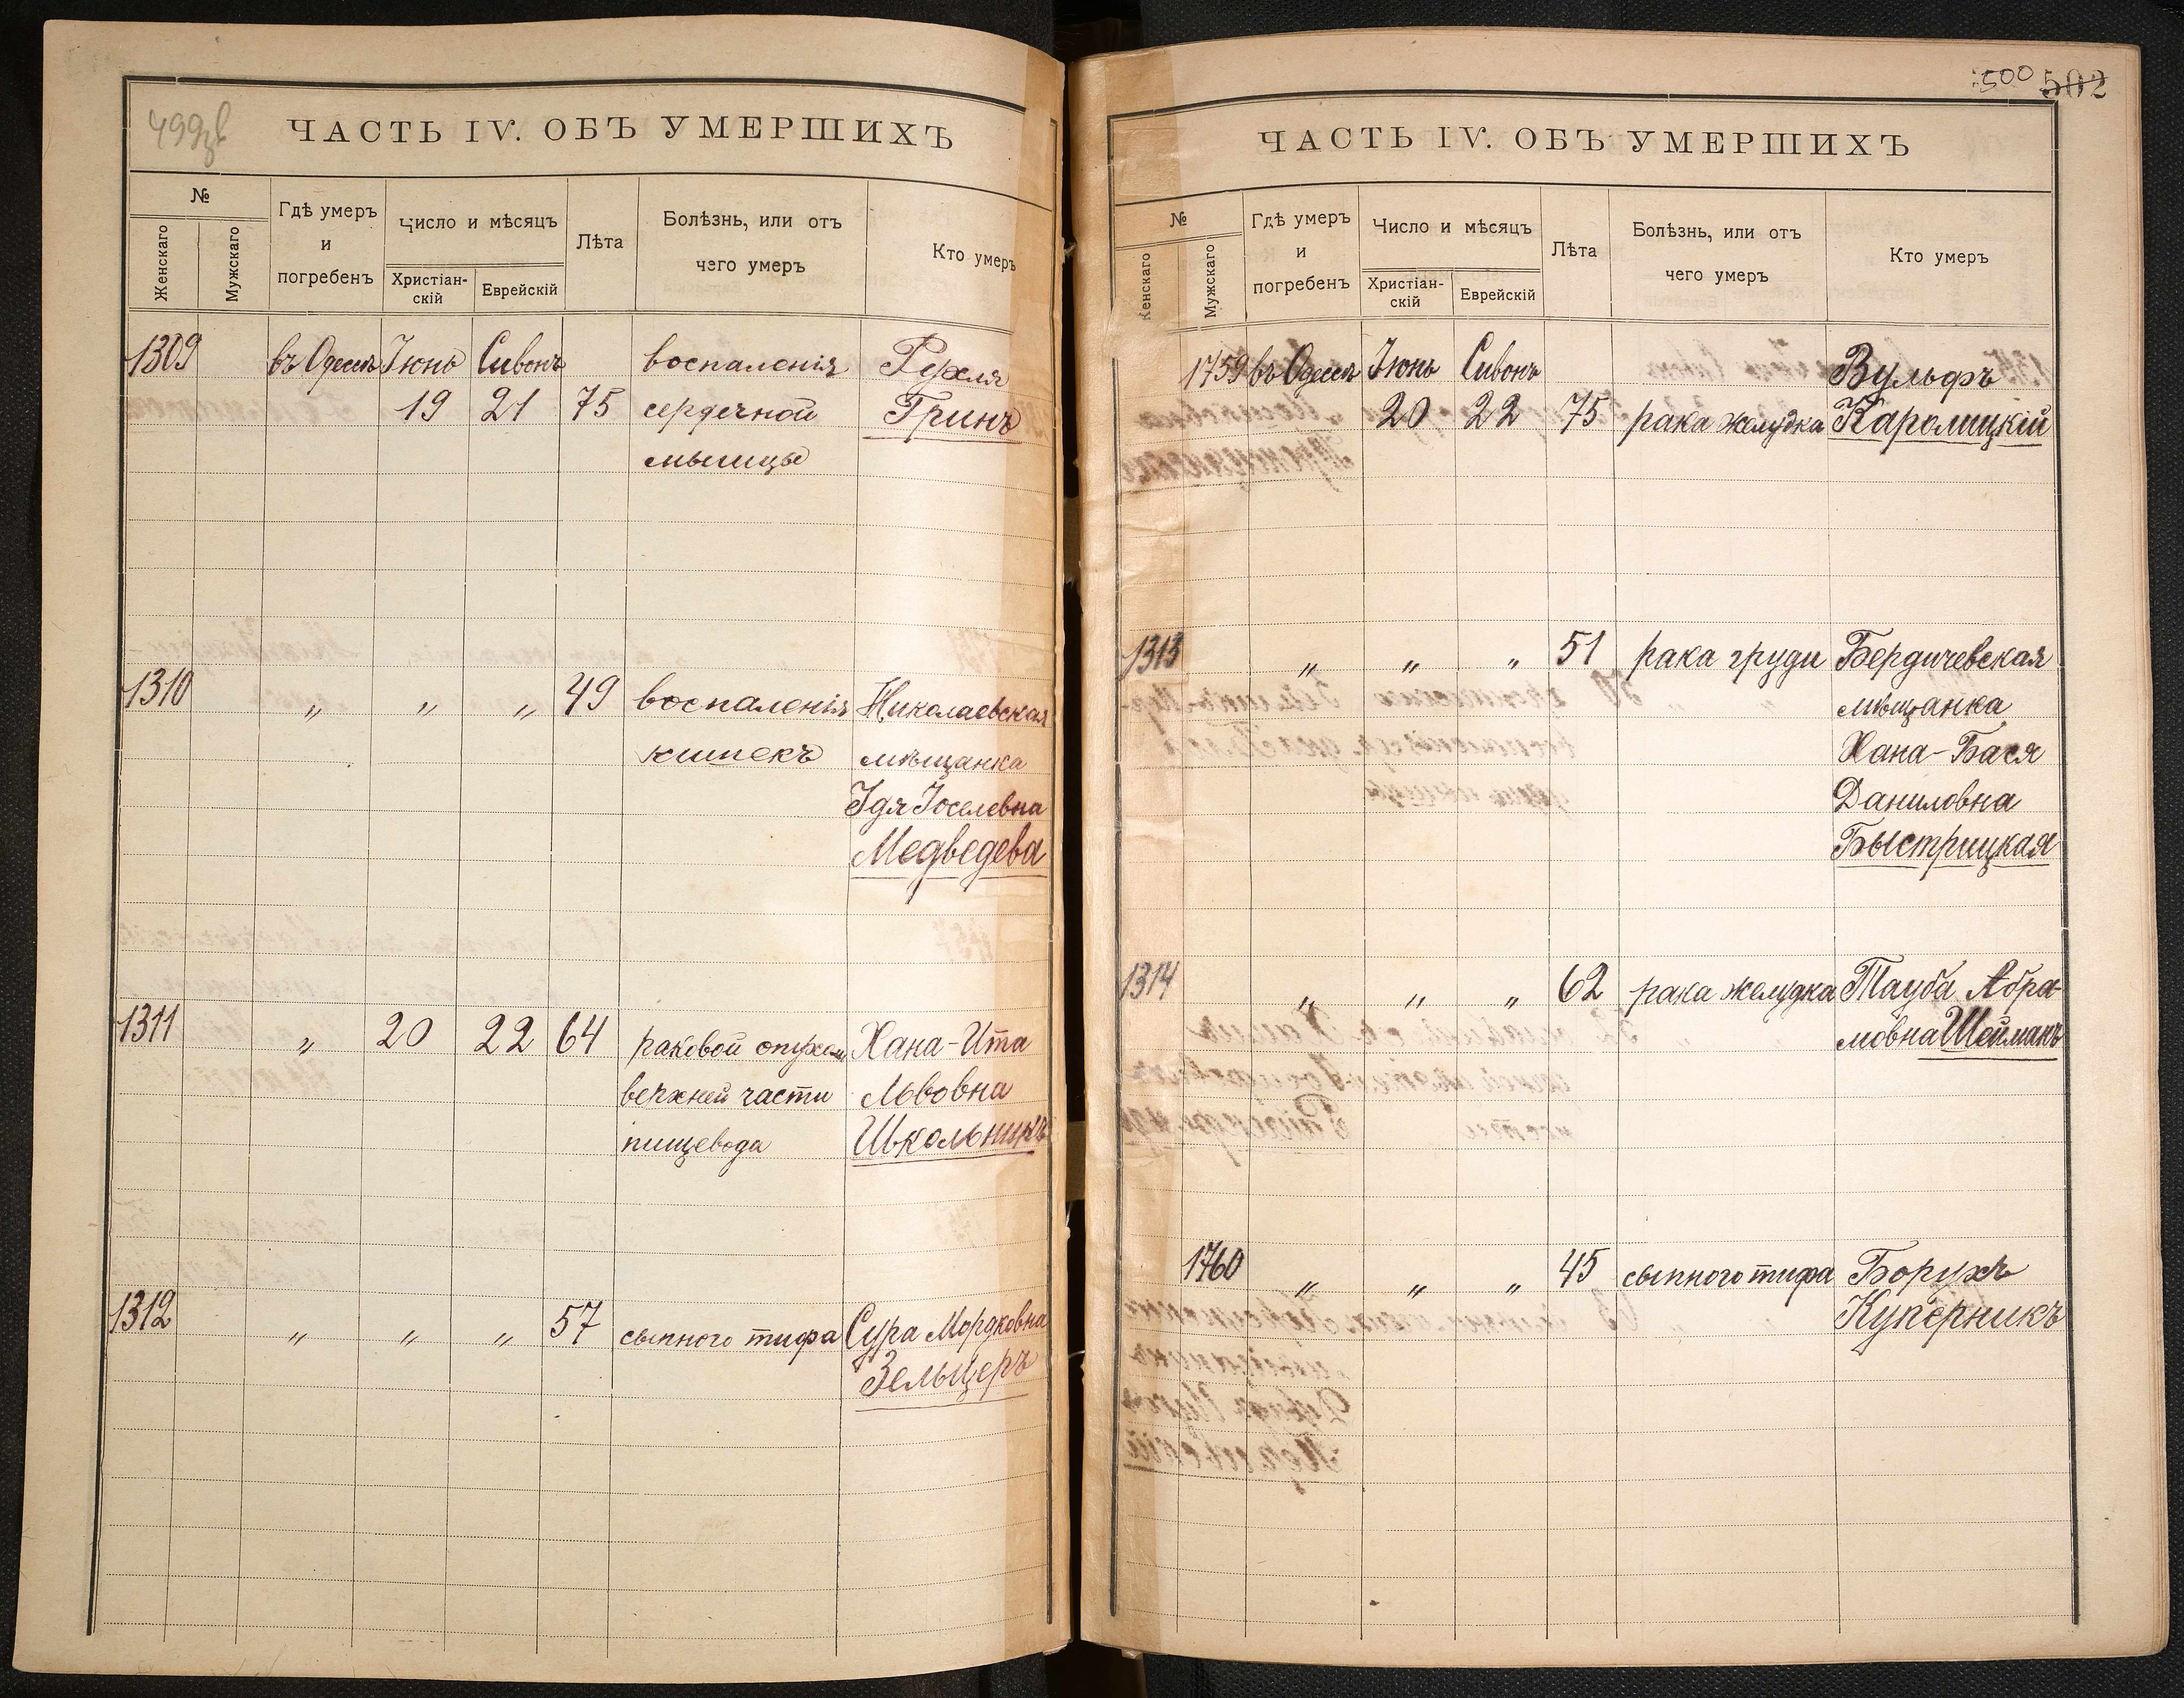 499об
ЧАСТЬ IV. ОБЪ УМЕРШИХЪ
№
Женскаго
Мужскаго
Гдѣ умеръ
и
погребенъ
Число и мѣсяцъ
Христіан-
скій
Еврейскій
Лѣта
Болѣзнь, или отъ
чего умеръ
Кто умеръ
1309 въ Одессѣ Іюнь Сивонъ воспаленія Рухля
19 21 75 сердечной Гринъ
мышцы
1310 " " " 49 воспаленія Николаевская
кишекъ мѣщанка
Идя Іоселевна
Медведева
1311 " 20 22 64 раковой опухоли Хана-Ита
верхней части Львовна
пищевода Школьникъ
1312 " " " 57 сыпного тифа Сура Мордковна
Зельцеръ
500 502
ЧАСТЬ IV. ОБЪ УМЕРШИХЪ
№
Женскаго
Мужскаго
Гдѣ умеръ
и
погребенъ
Число и мѣсяцъ
Христіан-
скій
Еврейскій
Лѣта
Болѣзнь, или отъ
чего умеръ
Кто умеръ
1759 въ Одессѣ Іюнь Сивонъ Вульфъ
20 22 75 рака желудка Каролицкій
1313 " " " 51 рака груди Бердичевская
мѣщанка
Хана-Бася
Даниловна
Быстрицкая
1314 " " " 62 рака желудка Тауба Абра-
мовна Шейманъ
1760 " " " 45 сыпного тифа Борухъ
Куперникъ